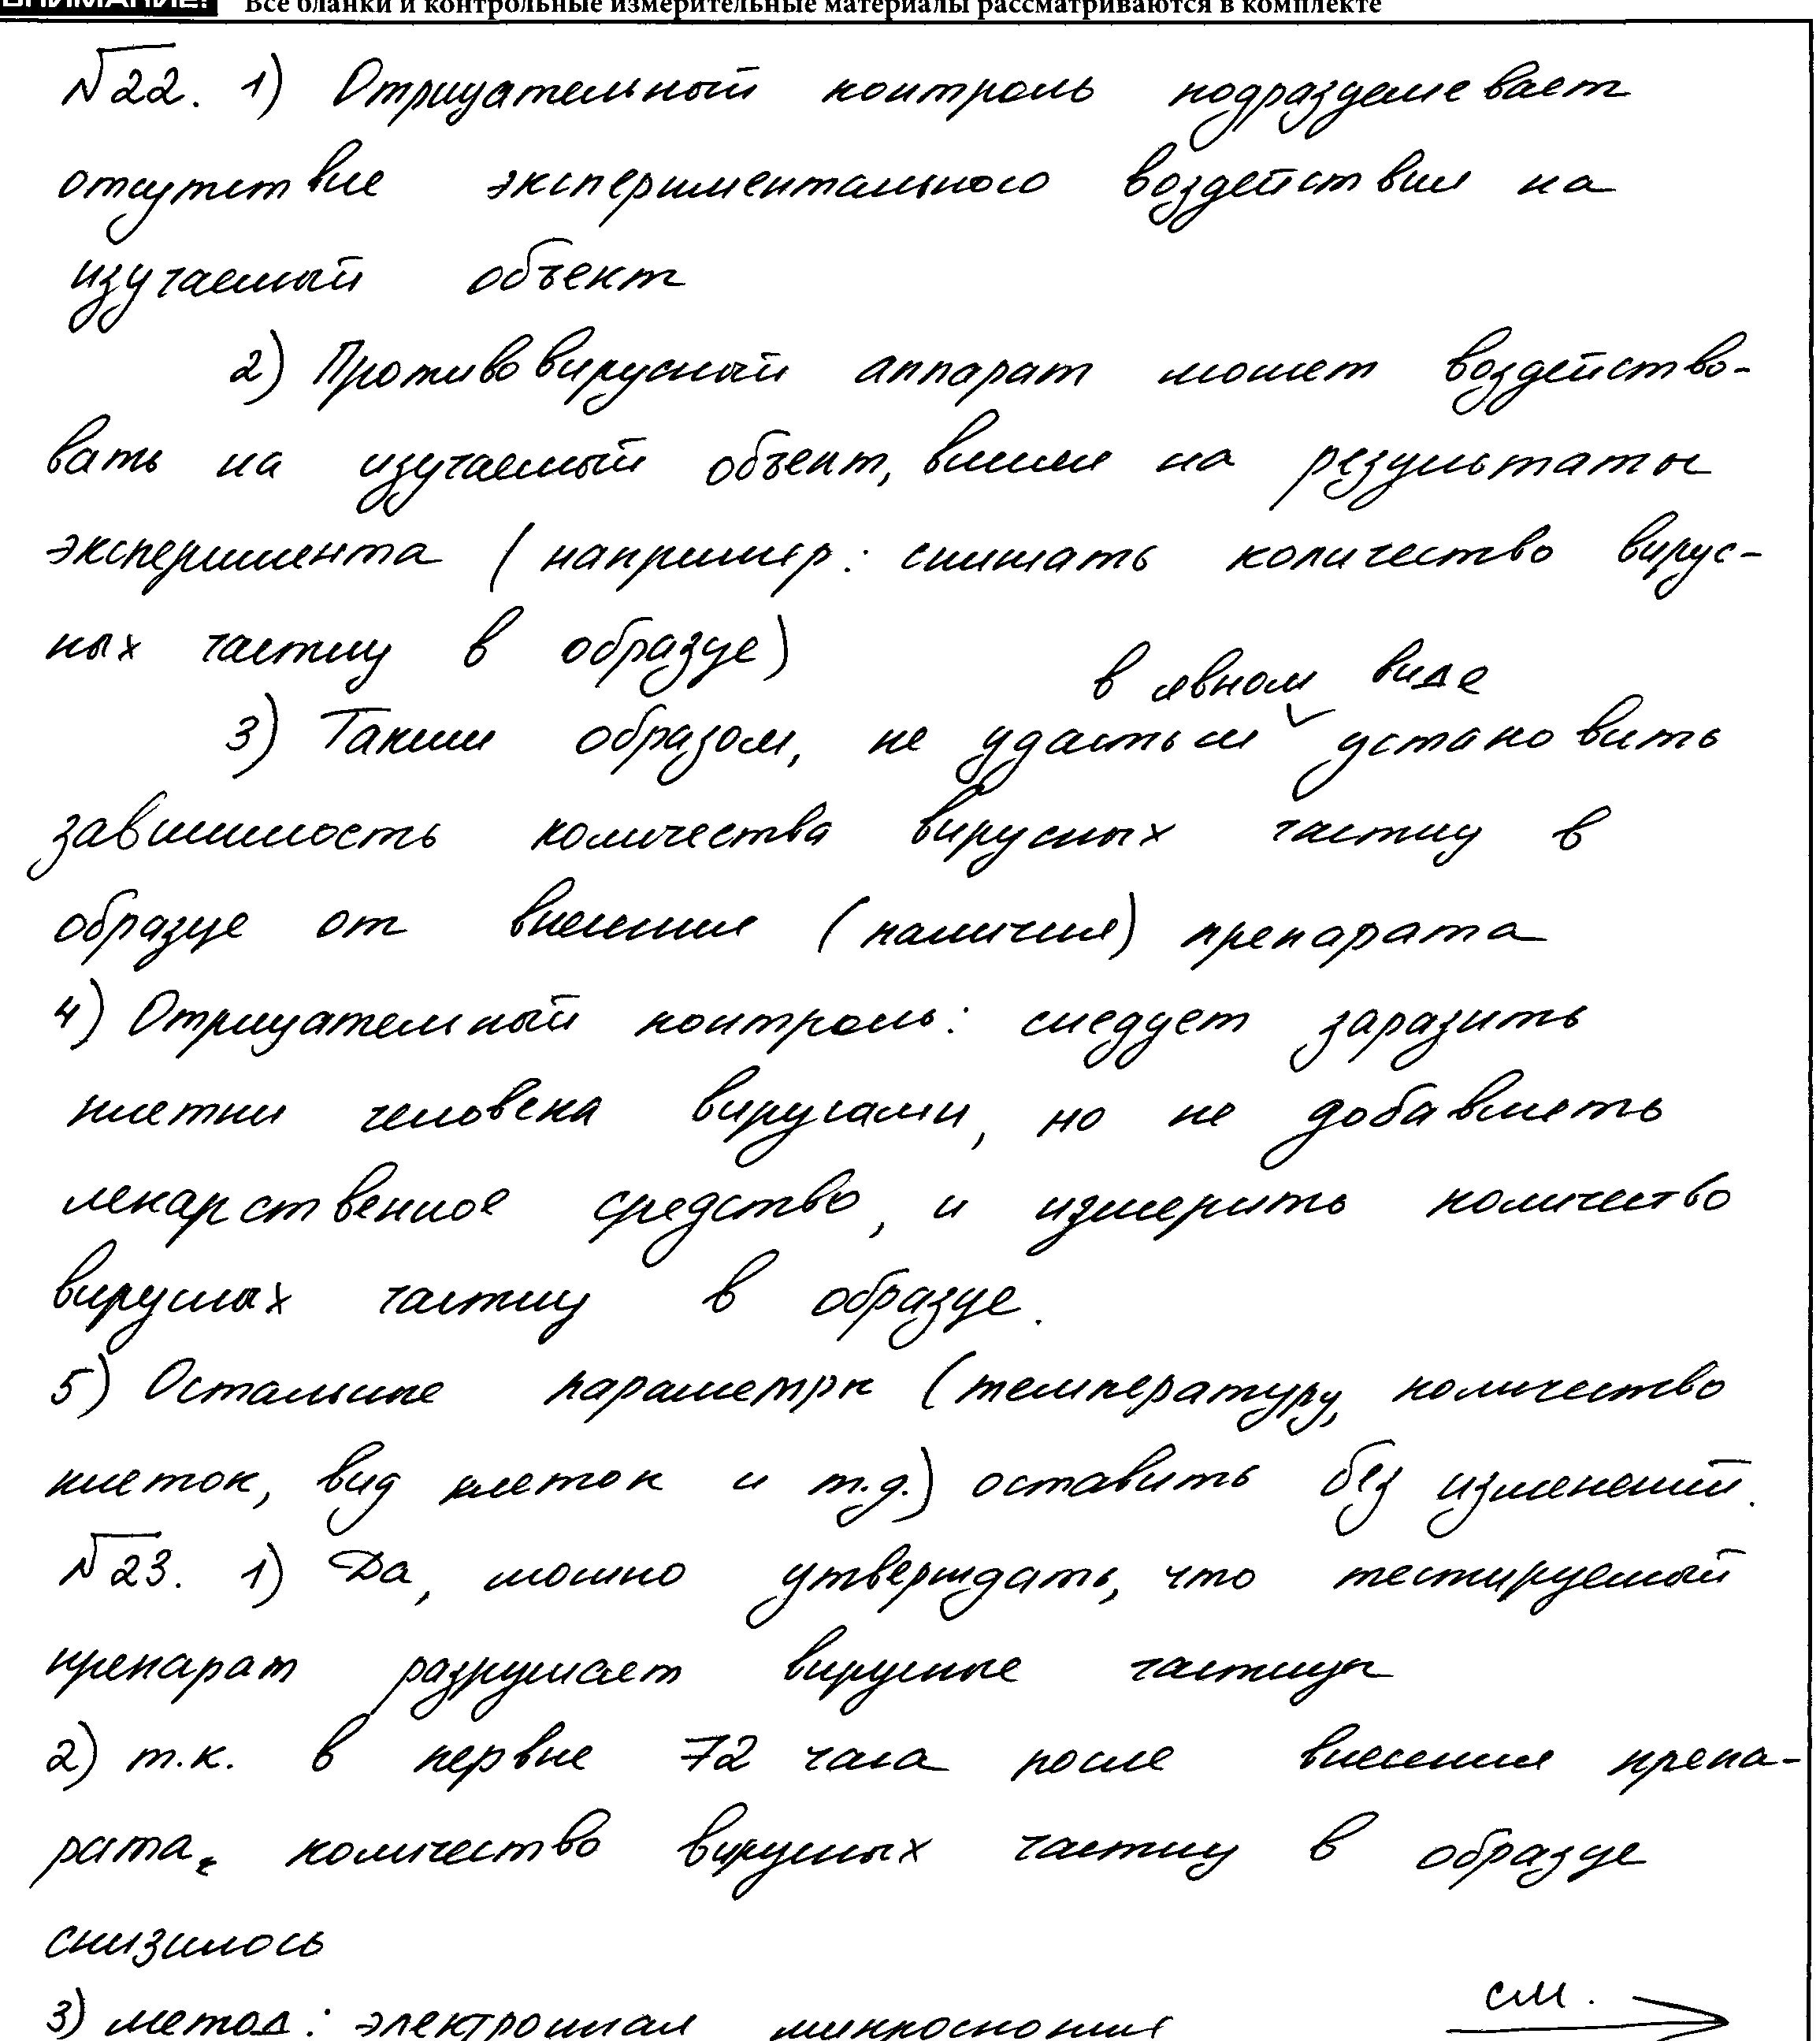 ВНИМАНИЕ! Все бланки и контрольные измерительные материалы рассматриваются в комплекте
№22. 1) Отрицательный контроль подразделевает
отсутствие экспериментального воздействия на
изучаемый объект
2) Противовирусный аппарат может воздейство-
вать на изучаемый объект, влияя на результаты
эксперимента (например: снижать количество вирус-
ных частиц в образце)
в явном виде
3) Таким образом, не удасться установить
зависимость количества вирусных частиц в
образце от внесения (наличия) препарата
4) Отрицательный контроль: следует заразить
клетки человека вирусами, но не добавлять
лекарственное средство, и измерить количество
вирусных частиц в образце.
5) Остальные параметры (температуру, количество
клеток, вид клеток и т.д.) оставить без изменений.
№23. 1) Да, можно утверждать, что тестируемый
препарат разрушает вирусные частицы
2) т.к. в первые 72 часа после внесения препа-
рата, количество вирусных частиц в образце
снизилось
3) метод: электронная микроскопия см.